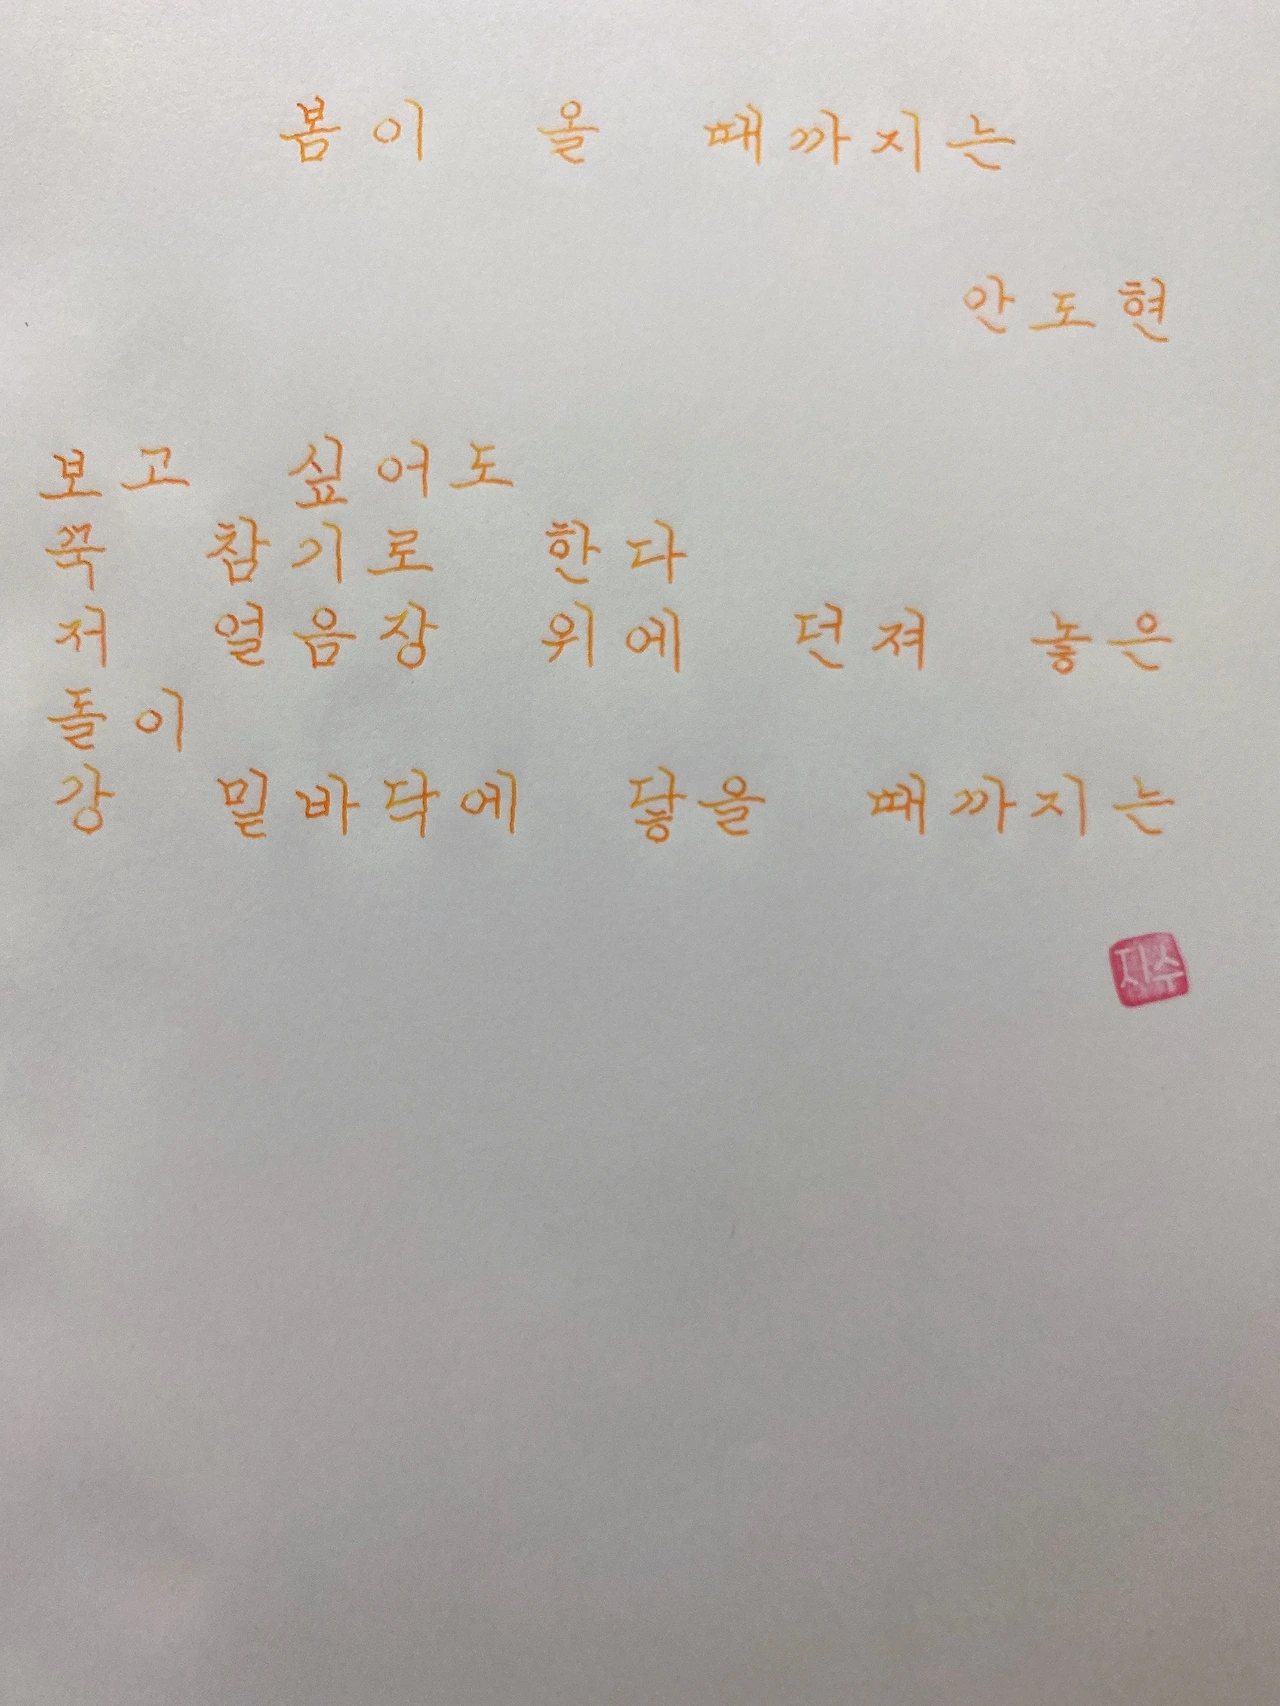 봄이 올 때까지는
안도현
보고 싶어도
꾹 참기로 한다
저 얼음장 위에 던져 놓은
돌이
강 밑바닥에 닿을 때까지는
지수